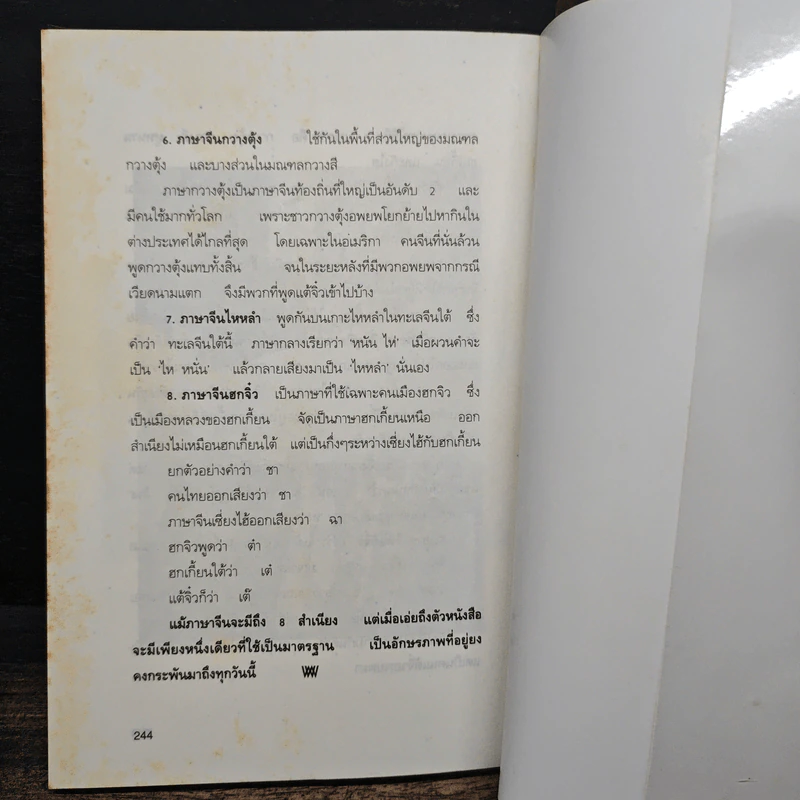 6. ภาษาจีนกวางตุ้ง ใช้กันในพื้นที่ส่วนใหญ่ของมณฑล
กวางตุ้ง และบางส่วนในมณฑลกวางสี
ภาษากวางตุ้งเป็นภาษาจีนท้องถิ่นที่ใหญ่เป็นอันดับ 2 และ
มีคนใช้มากทั่วโลก เพราะชาวกวางตุ้งอพยพโยกย้ายไปหากินใน
ต่างประเทศได้ไกลที่สุด โดยเฉพาะในอเมริกา คนจีนที่นั่นล้วน
พูดกวางตุ้งแทบทั้งสิ้น จนในระยะหลังที่มีพวกอพยพจากกรณี
เวียดนามแตก จึงมีพวกที่พูดแต้จิ๋วเข้าไปบ้าง
7. ภาษาจีนไหหลำ พูดกันบนเกาะไหหลำในทะเลจีนใต้ ซึ่ง
คำว่า ทะเลจีนใต้นี้ ภาษากลางเรียกว่า 'หนัน ไห่' เมื่อผวนคำจะ
เป็น 'ไห หนั่น' แล้วกลายเสียงมาเป็น 'ไหหลำ' นั่นเอง
8. ภาษาจีนฮกจิ๋ว เป็นภาษาที่ใช้เฉพาะคนเมืองฮกจิว ซึ่ง
เป็นเมืองหลวงของฮกเกี้ยน จัดเป็นภาษาฮกเกี้ยนเหนือ ออก
สำเนียงไม่เหมือนฮกเกี้ยนใต้ แต่เป็นกึ่งๆระหว่างเซี่ยงไฮ้กับฮกเกี้ยน
ยกตัวอย่างคำว่า ชา
คนไทยออกเสียงว่า ชา
ภาษาจีนเซี่ยงไฮ้ออกเสียงว่า ฉา
ฮกจิวพูดว่า ต๋า
ฮกเกี้ยนใต้ว่า เต๋
แต้จิ๋วก็ว่า เต๊
แม้ภาษาจีนจะมีถึง 8 สำเนียง แต่เมื่อเอ่ยถึงตัวหนังสือ
จะมีเพียงหนึ่งเดียวที่ใช้เป็นมาตรฐาน เป็นอักษรภาพที่อยู่ยง
คงกระพันมาถึงทุกวันนี้
244